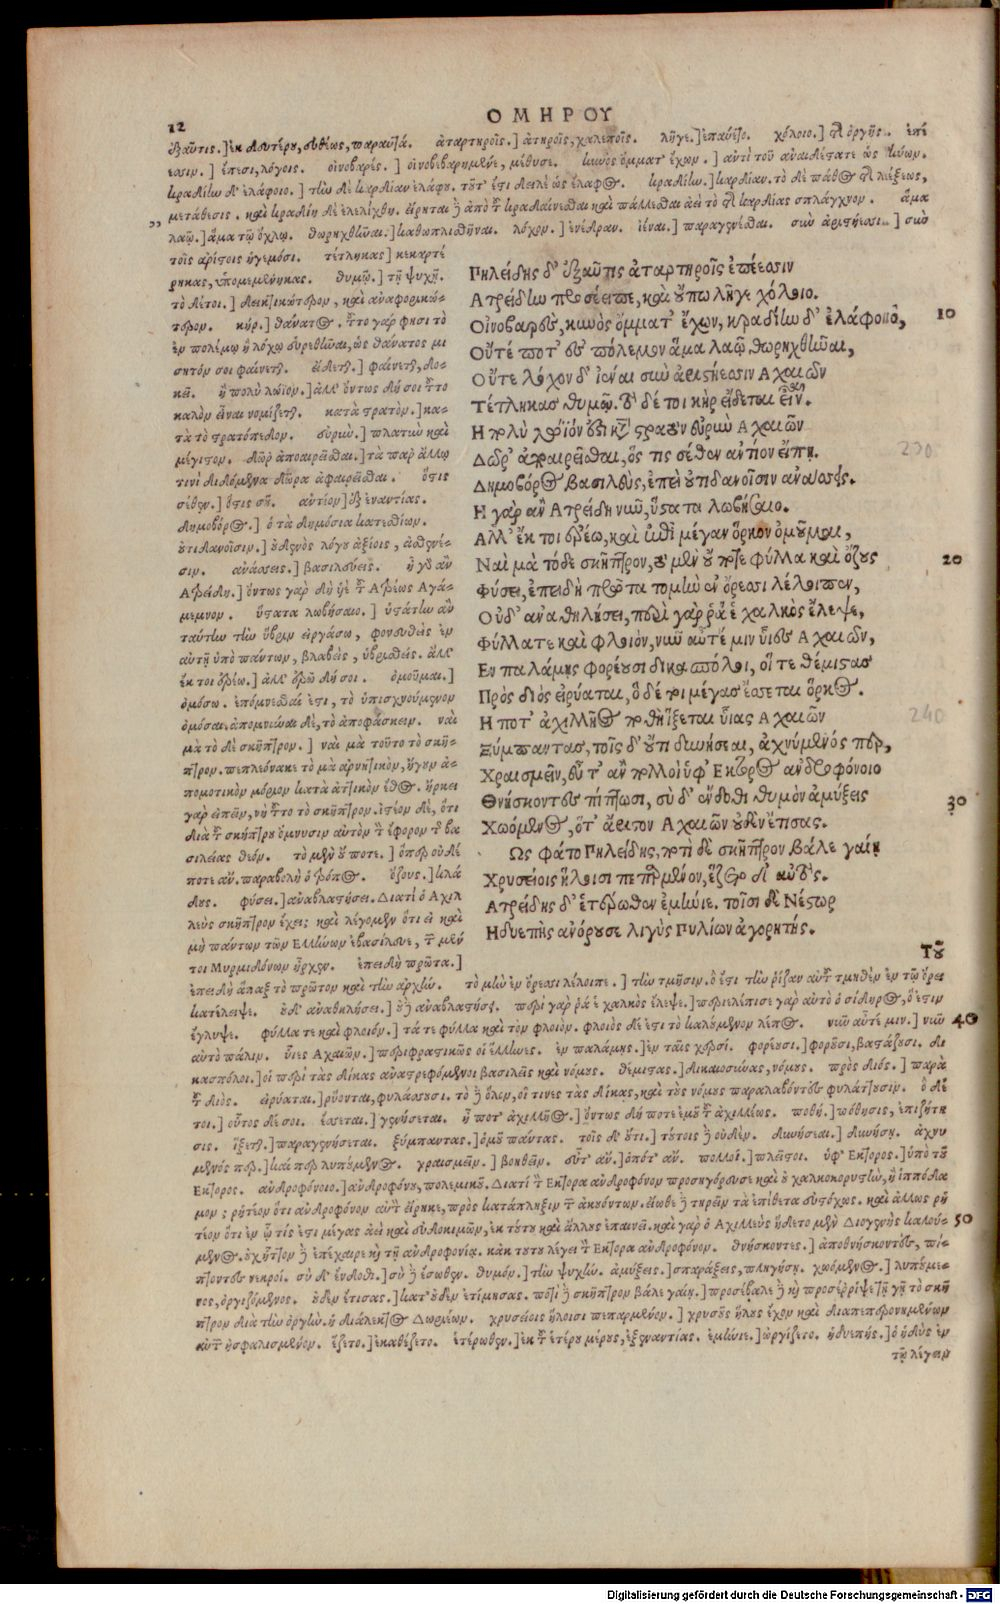 12
ΟΜΗΡΟΥ
ἐξαῦτις.] ἐκ δευτέρου, εὐθέως, παραυτά. ἀταρτηροῖς.] ἀτηροῖς, χαλεποῖς. λῆγε.] ἐπαύετο. χόλοιο.] τῆς ὀργῆς. ἐπέ
εσιν.] ἔπεσι, λόγοις. οἰνοβαρές.] οἰνοβεβαρημένε, μέθυσε. κυνὸς ὄμματ' ἔχων.] ἀντὶ τοῦ ἀναιδέστατε ὡς κύων.
κραδίην δ' ἐλάφοιο.] τὴν δὲ καρδίαν ἐλάφου. τουτ' ἔστι δειλὲ ὡς ἔλαφος. κραδίην.] καρδίαν. τὸ δὲ πάθος τῆς λέξεως,
μετάθεσις. καὶ κραδίη δὲ ἐλελίχθη. εἴρηται δὲ ἀπὸ τοῦ κραδαίνεσθαι καὶ πάλλεσθαι ἀεὶ τὸ τῆς καρδίας σπλάγχνον. ἅμα
λαῷ.] ἅμα τῷ ὄχλῳ. θωρηχθῆναι.] καθωπλισθῆναι. λόχον.] ἐνέδραν. ἰέναι.] παραγενέσθαι. σὺν ἀριστήεσσι.] σὺν
τοῖς ἀρίστοις ἡγεμόσι. τέτληκας] κεκαρτέ
ρηκας, ὑπομεμένηκας. θυμῷ.] τῇ ψυχῇ.
Πηλείδης δ' ἐξαῦτις ἀταρτηροῖς ἐπέεσσιν
Ἀτρείδην προσέειπε, καὶ οὔπω λῆγε χόλοιο.
Οἰνοβαρὲς, κυνὸς ὄμματ' ἔχων, κραδίην δ' ἐλάφοιο, 10
Οὔτέ ποτ' ἐς πόλεμον ἅμα λαῷ θωρηχθῆναι,
Οὔτε λόχον δ' ἰέναι σὺν ἀριστήεσσιν Ἀχαιῶν
Τέτληκας θυμῷ. τὸ δέ τοι κὴρ εἴδεται εἶναι.
Ἦ πολὺ λώϊόν ἐστι κατὰ στρατὸν εὐρὺν Ἀχαιῶν
Δῶρ' ἀποαιρεῖσθαι, ὅς τις σέθεν ἀντίον εἴπῃ.
230
Δημοβόρος βασιλεὺς, ἐπεὶ οὐτιδανοῖσιν ἀνάσσεις.
Ἦ γὰρ ἂν Ἀτρείδη νῦν, ὕστατα λωβήσαιο.
Ἀλλ' ἔκ τοι ἐρέω, καὶ ἐπὶ μέγαν ὅρκον ὀμοῦμαι,
Ναὶ μὰ τόδε σκῆπτρον, τὸ μὲν οὔ ποτε φύλλα καὶ ὄζους 20
Φύσει, ἐπειδὴ πρῶτα τομὴν ἐν ὄρεσσι λέλοιπεν,
Οὐδ' ἀναθηλήσει, περὶ γάρ ῥά ἑ χαλκὸς ἔλεψε,
Φύλλά τε καὶ φλοιόν, νῦν αὖτέ μιν υἷες Ἀχαιῶν,
Ἐν παλάμῃς φορέουσι δικασπόλοι, οἵ τε θέμιστας
Πρὸς διὸς εἰρύαται, ὁ δέ τοι μέγας ἔσσεται ὅρκος.
Ἦ ποτ' ἀχιλλῆος ποθὴ ἵξεται υἷας Ἀχαιῶν
240
Ξύμπαντας, τοῖς δ' οὔτι δυνήσεαι, ἀχνύμενός περ,
Χραισμεῖν, εὖτ' ἂν πολλοὶ ὑφ' Ἕκτορος ἀνδροφόνοιο
Θνήσκοντες πίπτωσι, σὺ δ' ἔνδοθι θυμὸν ἀμύξεις 30
Χωόμενος, ὅτ' ἄριστον Ἀχαιῶν οὐδὲν ἔτισας.
Ὣς φάτο Πηλείδης, ποτὶ δὲ σκῆπτρον βάλε γαίῃ
Χρυσείοις ἥλοισι πεπαρμένον, ἕζετο δ' αὐτός.
Ἀτρείδης δ' ἑτέρωθεν ἐμήνιε. τοῖσι δὲ Νέστωρ
Ἡδυεπὴς ἀνόρουσε λιγὺς Πυλίων ἀγορητής.
Τοῦ
τὸ λέγοι.] δεικτικώτερον, καὶ ἀναφορικώ-
τερον. κήρ.] θάνατος. τοῦτο γάρ φησι τὸ
ἐν πολέμῳ ἢ λόχῳ εὑρεθῆναι, ὡς θάνατος μι
σητόν σοι φαίνεται. εἴδεται.] φαίνεται, δο-
κεῖ. ἦ πολὺ λώϊον.] ἀλλ' ὄντως δή σοι τοῦτο
καλὸν εἶναι νομίζεται. κατὰ στρατὸν.] κα-
τὰ τὸ στρατόπεδον. εὐρὺν.] πλατὺν καὶ
μέγιστον. δῶρ' ἀποαιρεῖσθαι.] τὰ παρ' ἄλλῳ
τινὶ διδόμενα δῶρα ἀφαιρεῖσθαι. ὅστις
σέθεν.] ὅστις σῇ. ἀντίον] ἐξ ἐναντίας.
δημοβόρος.] ὁ τὰ δημόσια κατεσθίων.
οὐτιδανοῖσιν.] οὐδενὸς λόγου ἀξίοις, ἀσθενέ-
σιν. ἀνάσσεις.] βασιλεύεις. ἦ γὰρ ἂν
Ἀτρείδη.] ὄντως γὰρ δὴ υἱὲ τοῦ Ἀτρέως Ἀγά-
μεμνον. ὕστατα λωβήσαιο.] ὑστάτην ἂν
ταύτην τὴν ὕβριν εἰργάσω, φονευθεὶς ἐν
αὐτῇ ὑπὸ πάντων, βλαβεὶς, ὑβρισθείς. ἀλλ'
ἔκ τοι ἐρέω.] ἀλλ' ἐρῶ δή σοι. ὀμοῦμαι.]
ὀμόσω. ἐπόμνυσθαί ἐστι, τὸ ὑπισχνούμενον
ὀμόσαι, ἀπομνῦναι δὲ, τὸ ἀποφάσκειν. ναὶ
μὰ τὸ δὲ σκῆπτρον.] ναὶ μὰ τοῦτο τὸ σκῆ-
πτρον. πεπλεόνακε τὸ μὰ ἀρνητικὸν, ἤγουν ἀ-
πομοτικὸν μόριον κατὰ ἀττικὸν ἔθος. ἤρκει
γὰρ εἰπεῖν, νὴ τοῦτο τὸ σκῆπτρον. ἰστέον δὲ, ὅτι
διὰ τοῦ σκήπτρου ὄμνυσιν αὐτὸν τὸν ἔφορον τῆς βα
σιλείας θεόν. τὸ μὲν οὔποτε.] ὅπερ οὐδέ
ποτε ἄν. παραβολὴ ὁ τρόπος. ὄζους.] κλά
δους. φύσει.] ἀναβλαστήσει. Διατί ὁ Ἀχιλ
λεὺς σκῆπτρον ἔχει; καὶ λέγομεν ὅτι εἰ καὶ
μὴ πάντων τῶν Ἑλλήνων ἐβασίλευε, τῶν μέν
τοι Μυρμιδόνων ἦρχεν. ἐπειδὴ πρῶτα.]
ἐπειδὴ ἅπαξ τὸ πρῶτον καὶ τὴν ἀρχήν. τὸ μὴν ἐν ὄρεσσι λέλοιπε.] τὴν τμῆσιν. ὅ ἐστι τὴν ῥίζαν αὐτοῦ τμηθὲν ἐν τῷ ὄρει
κατέλειψε. οὐδ' ἀναθηλήσει.] οὐδὲ ἀναβλαστήσει. περὶ γάρ ῥά ἑ χαλκὸς ἔλεψε.] περιελέπισε γὰρ αὐτὸ ὁ σίδηρος, ὅ ἐστιν
ἔγλυψε. φύλλα τε καὶ φλοιόν.] τά τε φύλλα καὶ τὸν φλοιόν. φλοιὸς δέ ἐστι τὸ καλούμενον λέπος. νῦν αὖτέ μιν.] νῦν 40
αὐτὸ πάλιν. υἷες Ἀχαιῶν.] περιφραστικῶς οἱ ἕλληνες. ἐν παλάμῃς.] ἐν ταῖς χερσί. φορέουσι.] φοροῦσι, βαστάζουσι. δι
κασπόλοι.] οἱ περὶ τὰς δίκας ἀναστρεφόμενοι βασιλεῖς καὶ νόμους. θέμιστας.] δικαιοσύνας, νόμους. πρὸς Διός.] παρὰ
τοῦ Διός. εἰρύαται.] ῥύονται, φυλάσσουσι. τὸ δὲ ὅλον, οἵ τινες τὰς δίκας, καὶ τοὺς νόμους παραλαβόντες φυλάττουσιν. ὁ δέ
τοι.] οὗτος δέ σοι. ἔσσεται.] γενήσεται. ἦ ποτ' ἀχιλλῆος.] ὄντως δή ποτε ἐμοῦ τοῦ ἀχιλλέως. ποθή.] πόθησις, ἐπιζήτη
σις. ἵξεται.] παραγενήσεται. ξύμπαντας.] ὁμοῦ πάντας. τοῖς δ' οὔτι.] τούτοις δὲ οὐδὲν. δυνήσεαι.] δυνήσῃ. ἀχνύ
μενός περ.] καί περ λυπούμενος. χραισμεῖν.] βοηθεῖν. εὖτ' ἄν.] ὁπότ' ἄν. πολλοί.] πλεῖστοι. ὑφ' Ἕκτορος.] ὑπὸ τοῦ
Ἕκτορος. ἀνδροφόνοιο.] ἀνδροφόνου, πολεμικοῦ. Διατί τὸν Ἕκτορα ἀνδροφόνον προσηγόρευσε καὶ οὐ χαλκοκορυστὴν, ἢ ἱππόδα
μον; ῥητέον ὅτι ἀνδροφόνον αὐτὸν εἴρηκε, πρὸς κατάπληξιν τῶν ἀκουόντων. εἴωθε δὲ τηρεῖν τὰ ἐπίθετα εὐστόχως. καὶ ἄλλως ῥη
τέον ὅτι ἐν ᾧ τίς ἐστι μέγας ἀεὶ καὶ εὐδοκιμῶν, ἐν τούτῳ καὶ ἄλλους ἐπαινεῖ. καὶ γὰρ ὁ Ἀχιλλεὺς ἥδετο μὲν Διογενὴς καλού- 50
μενος. οὐχ ἧττον δὲ ἐπέχαιρε καὶ τῇ ἀνδροφονίᾳ. κἀκ τούτου λέγει τὸν Ἕκτορα ἀνδροφόνον. θνήσκοντες.] ἀποθνήσκοντες, πί-
πτοντες νεκροί. σὺ δ' ἔνδοθι.] σὺ δὲ ἔσωθεν. θυμόν.] τὴν ψυχήν. ἀμύξεις.] σπαράξεις, πληγήσῃ. χωόμενος.] λυπούμε-
νος, ὀργιζόμενος. οὐδὲν ἔτισας.] κατ' οὐδὲν ἐτίμησας. ποτὶ δὲ σκῆπτρον βάλε γαίῃ.] προσέβαλε δὲ καὶ προσέρριψε τῇ γῇ τὸ σκῆ
πτρον διὰ τὴν ὀργήν. ἡ διάλεκτος Δωριέων. χρυσείοις ἥλοισι πεπαρμένον.] χρυσοῦς ἥλους ἔχον καὶ διαπεπερονημένων
αὐτῷ ἠσφαλισμένον. ἕζετο.] ἐκαθέζετο. ἑτέρωθεν.] ἐκ τοῦ ἑτέρου μέρους, ἐξεναντίας. ἐμήνιε.] ὠργίζετο. ἡδυεπής.] ὁ ἡδὺς ἐν
τῷ λέγειν
Digitalisierung gefördert durch die Deutsche Forschungsgemeinschaft - DFG